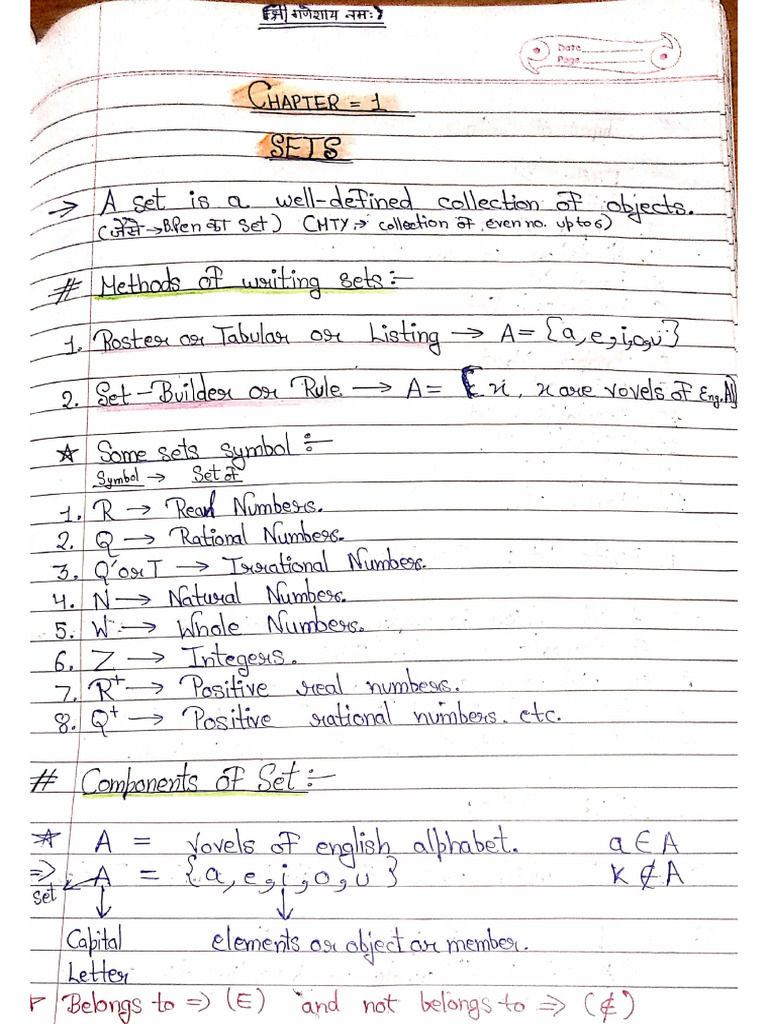 (श्री गणेशाय नमः)
Date
Page
CHAPTER = 1
SETS
→ A set is a well-defined collection of objects.
(जैसे → B.Pen का Set) (MTY → collection of even no. up to 6)
# Methods of writing sets:-
1. Roster or Tabular or Listing → A = {a, e, i, o, u}
2. Set-Builder or Rule → A = { x, x are vovels of Eng. A}
★ Some sets symbol:-
Symbol → Set of
1. R → Real Numbers.
2. Q → Rational Numbers.
3. Q' or T → Irrational Numbers.
4. N → Natural Numbers.
5. W → Whole Numbers.
6. Z → Integers.
7. R⁺ → Positive real numbers.
8. Q⁺ → Positive rational numbers. etc.
# Components of Set:-
★ A = vovels of english alphabet. a ∈ A
⇒ A = {a, e, i, o, u} K ∉ A
Set
Capital elements or object or member.
Letter
Belongs to ⇒ (∈) and not belongs to ⇒ (∉)